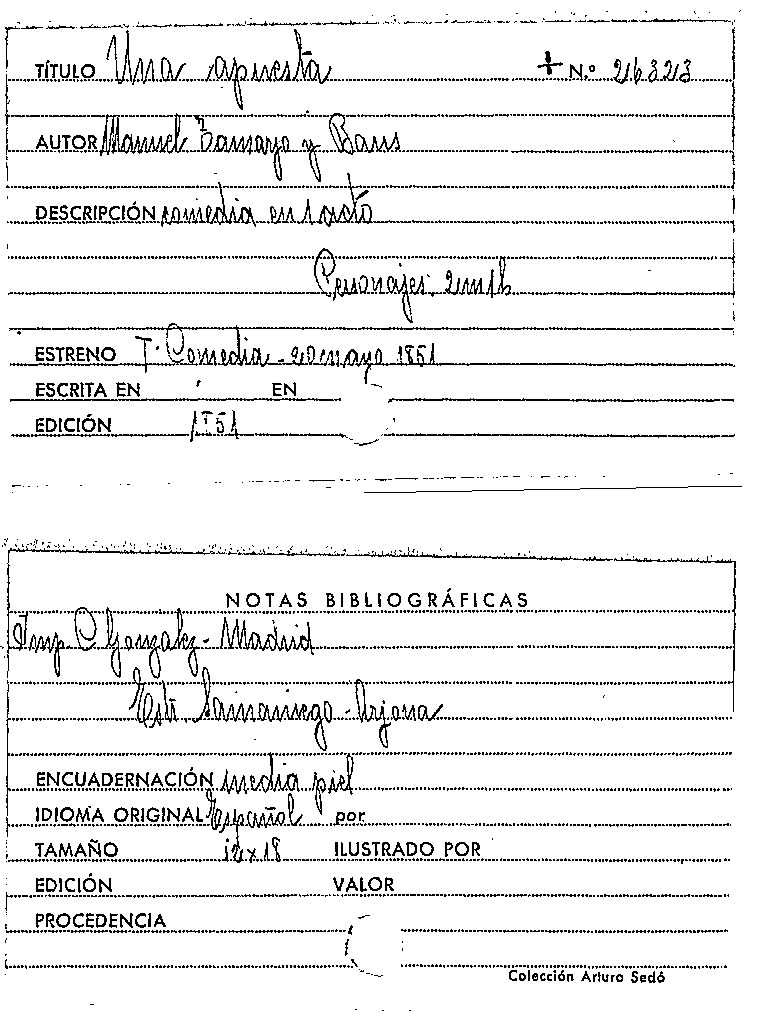 TÍTULO Una apuesta + N.º 26323
AUTOR Manuel Tamayo y Baus
DESCRIPCIÓN comedia en 1 acto
Personajes: 2m1h
ESTRENO T. Comedia - 20 mayo 1851
ESCRITA EN EN
EDICIÓN 1851
NOTAS BIBLIOGRÁFICAS
Imp. C. Gonzalez - Madrid
Estr. Samaniego - Arjona
ENCUADERNACIÓN media piel
IDIOMA ORIGINAL Español por
TAMAÑO 12 x 18 ILUSTRADO POR
EDICIÓN VALOR
PROCEDENCIA
Colección Arturo Sedó